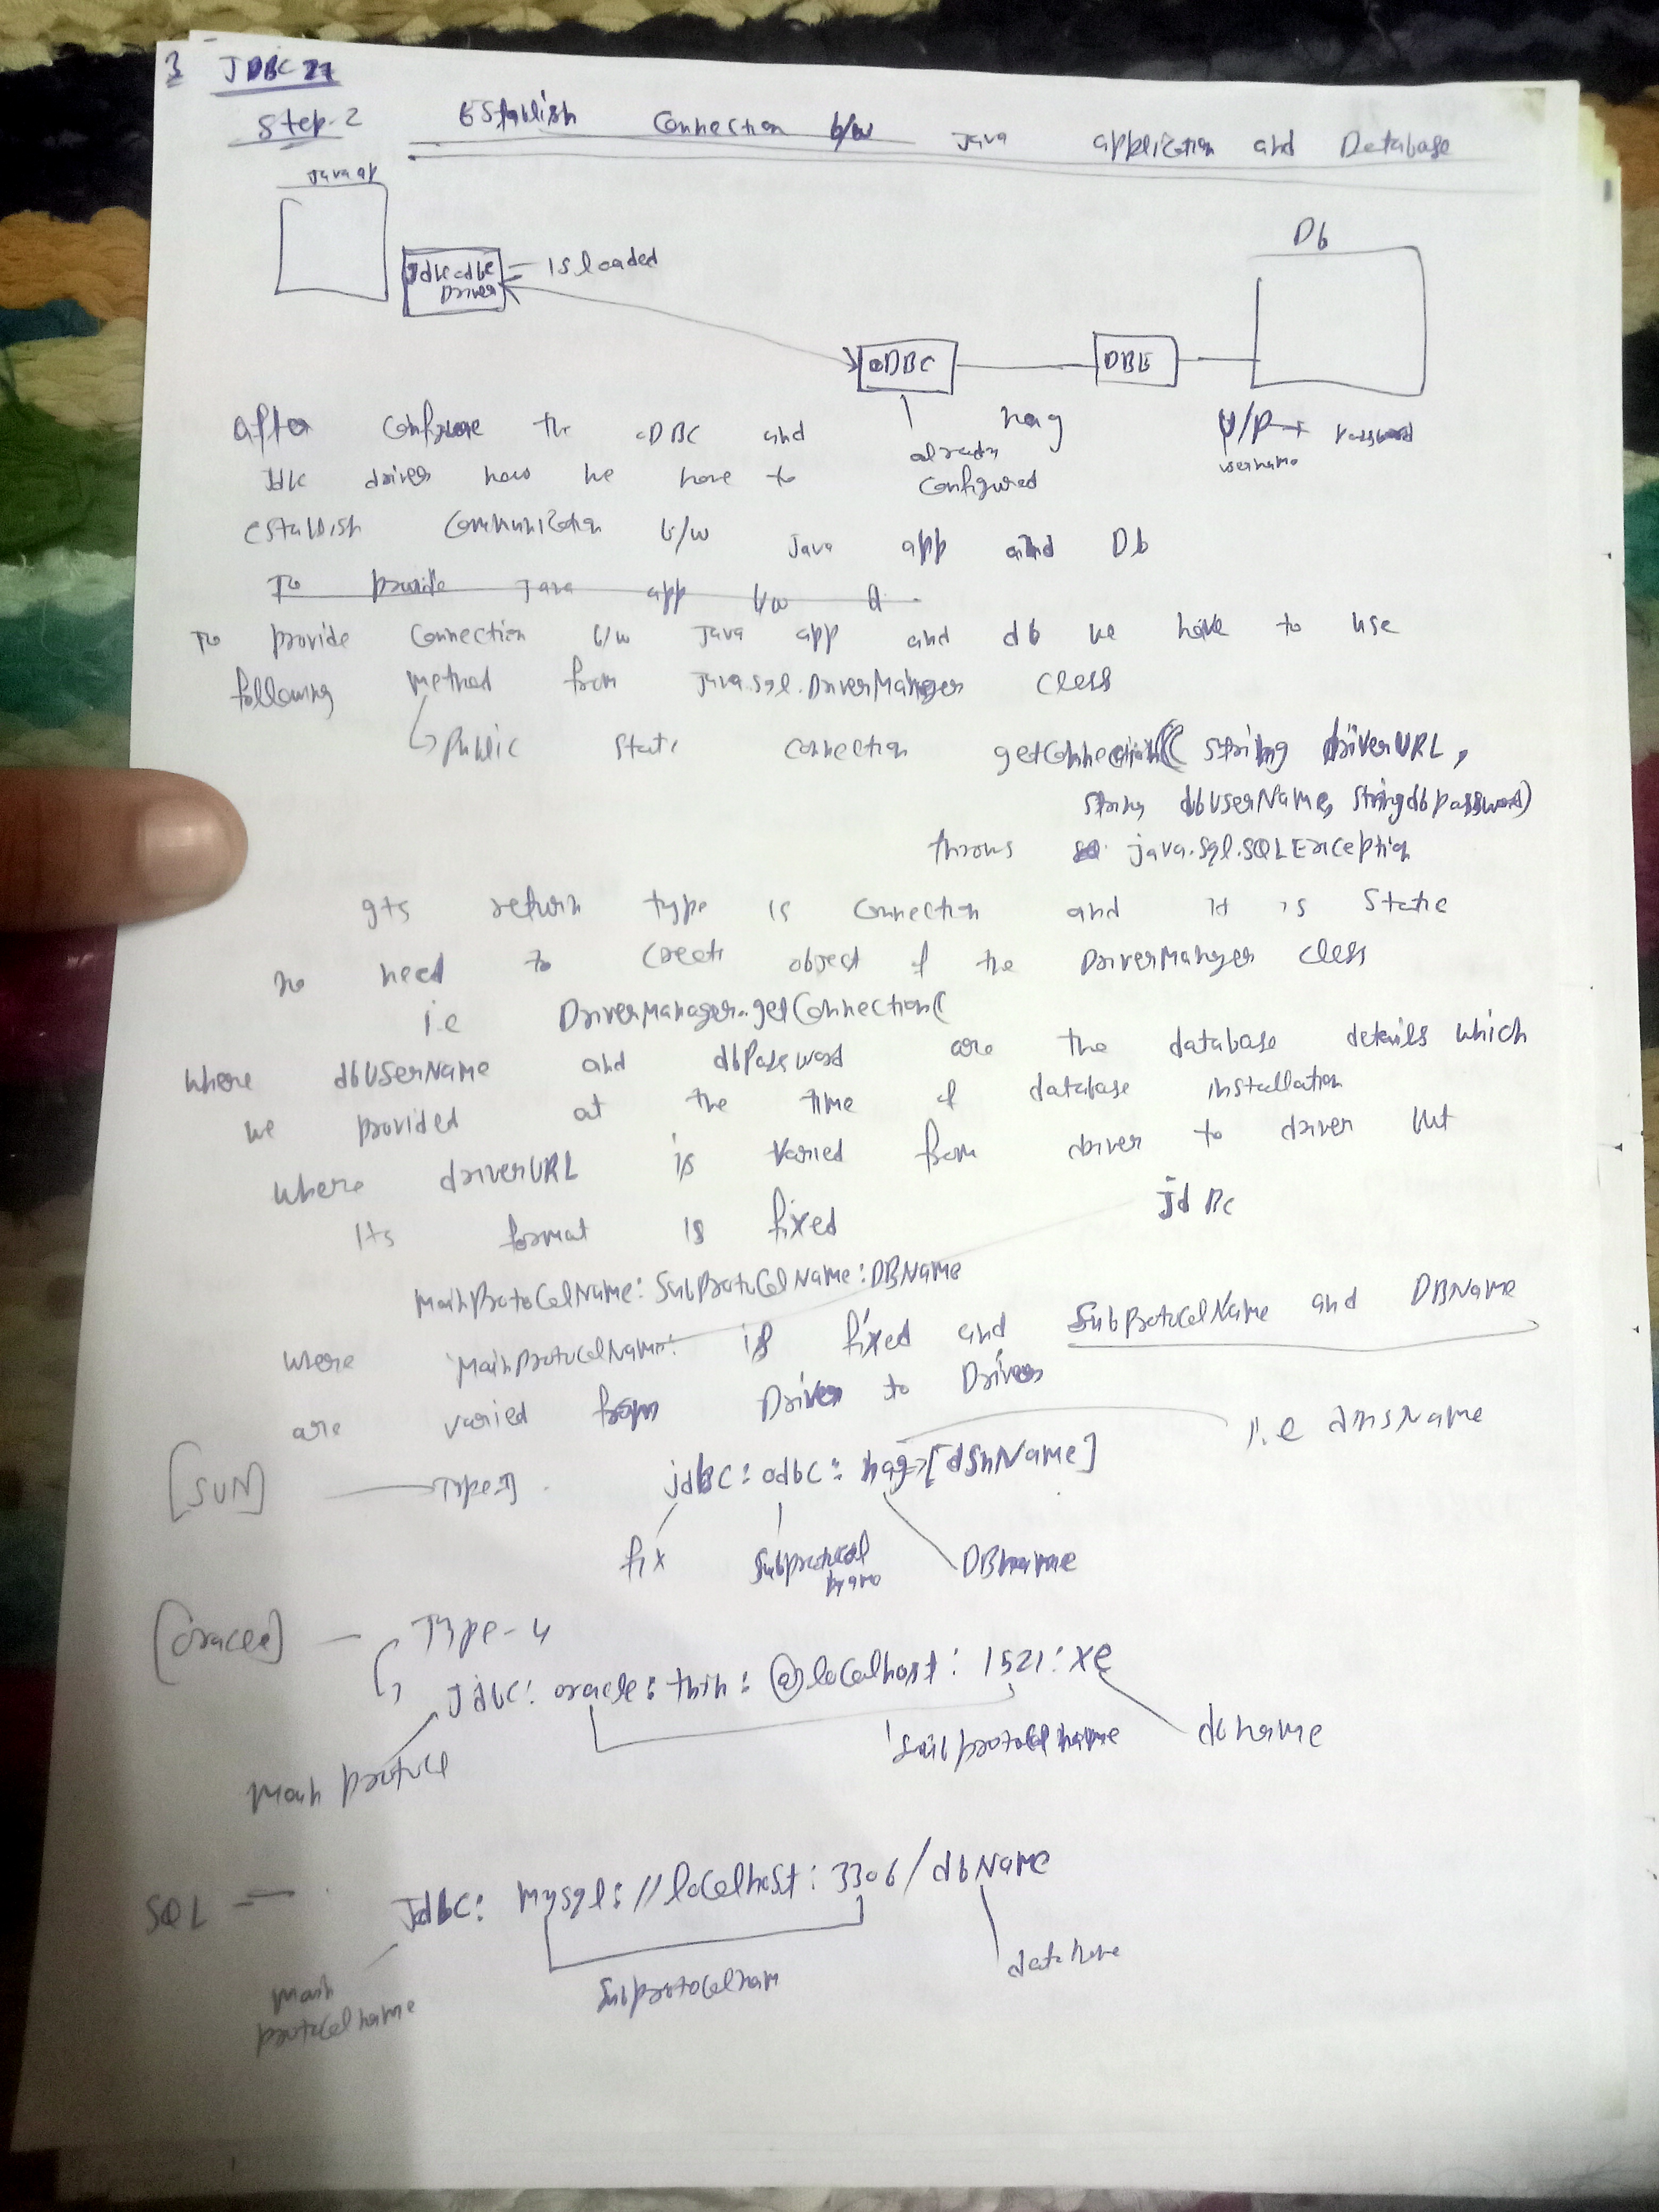 3 JDBC 27
Step-2 Establish Connection b/w Java application and Database
Java ap
Db
Jdbc odbc Driver = is loaded
ODBC DBE
already configured
nag
U/P → password
username
after configure the ODBC and
Jdbc driver now we have to
establish Communication b/w Java app and Db
To provide Java app b/w
To provide Connection b/w Java app and db we have to use
following method from Java.sql.DriverManager class
Public static connection getConnection(( string driverURL,
string dbUserName, string dbpassword)
throws java.sql.SQLException
Its return type is Connection and it is static
no need to create object of the DriverManager class
i.e DriverManager.getConnection(
where dbUserName and dbPassword are the database details which
we provided at the time of database installation
where driverURL is varied from driver to driver but
its format is fixed
jdBc
MainProtocolName: SubProtocolName: DBName
where MainProtocolName: is fixed and SubProtocolName and DBName
are varied from Driver to Driver
[SUN] Type-1 jdBC: odbc: nag→[dsnName] i.e dnsName
fix Subprotocol name DBname
[oracle] - Type-4
Jdbc: oracle: thin: @localhost: 1521: xe
Main protocol Subprotocol name dbname
SQL — Jdbc: mysql: //localhost: 3306/dbName
main protocol name Subprotocolnam